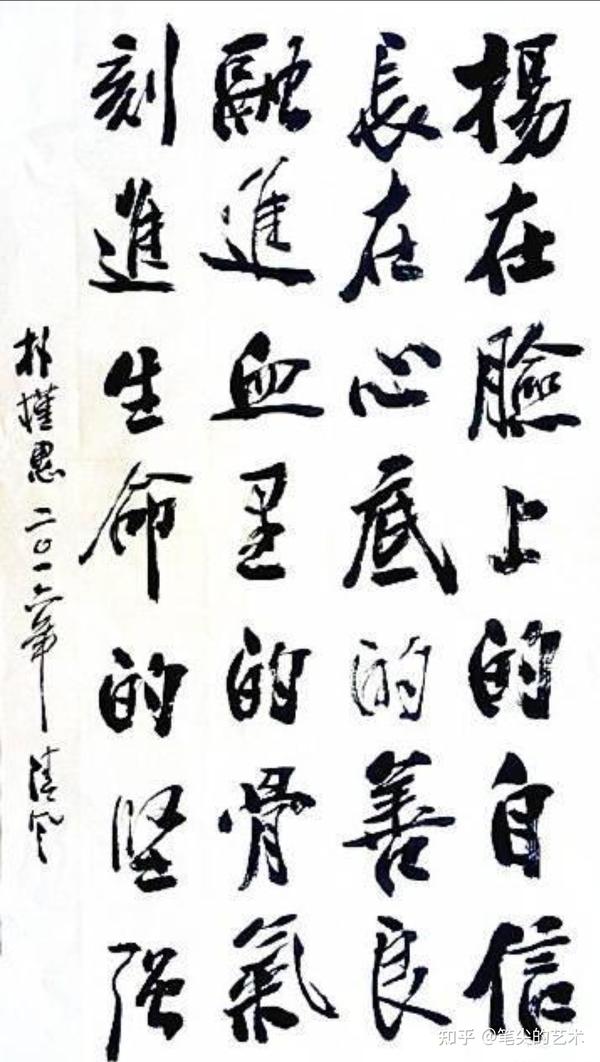 揚在臉上的自信
長在心底的善良
融進血里的骨氣
刻進生命的堅强
朴槿惠 二〇一六年 清风
知乎 @笔尖的艺术